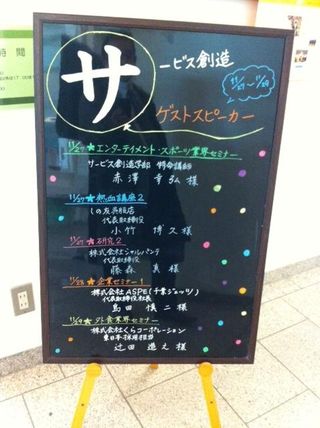 サービス創造
11/27〜11/29
ゲストスピーカー
11/27★エンターテイメント・スポーツ業界セミナー
サービス創造学部 特命講師
赤澤 幸弘 様
11/27★熱血講座2
しの友呉服店
代表取締役
小竹 博久 様
11/27★研究2
株式会社シャルパンテ
代表取締役
藤森 真 様
11/28★企業セミナー1
株式会社ASPE(千葉ジェッツ)
代表取締役社長
島田 慎二 様
11/29★外食業界セミナー
株式会社くらコーポレーション
東日本採用担当
辻田 進之 様